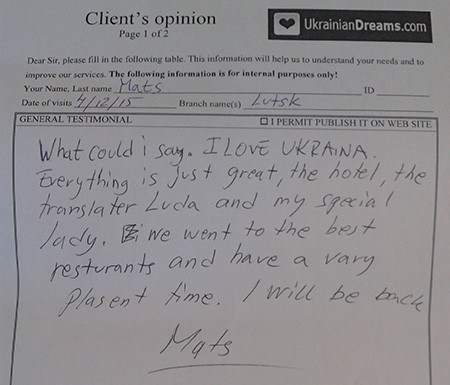 Client's opinion
Page 1 of 2
UkrainianDreams.com
Dear Sir, please fill in the following table. This information will help us to understand your needs and to
improve our services. The following information is for internal purposes only!
Your Name, Last name Mats ID
Date of visits 4/12/15 Branch name(s) Lutsk
GENERAL TESTIMONIAL I PERMIT PUBLISH IT ON WEB SITE
What could i say. I LOVE UKRAINA.
Everything is just great, the hotel, the
translater Luda and my special
lady. we went to the best
resturants and have a vary
plasent time. I will be back
Mats